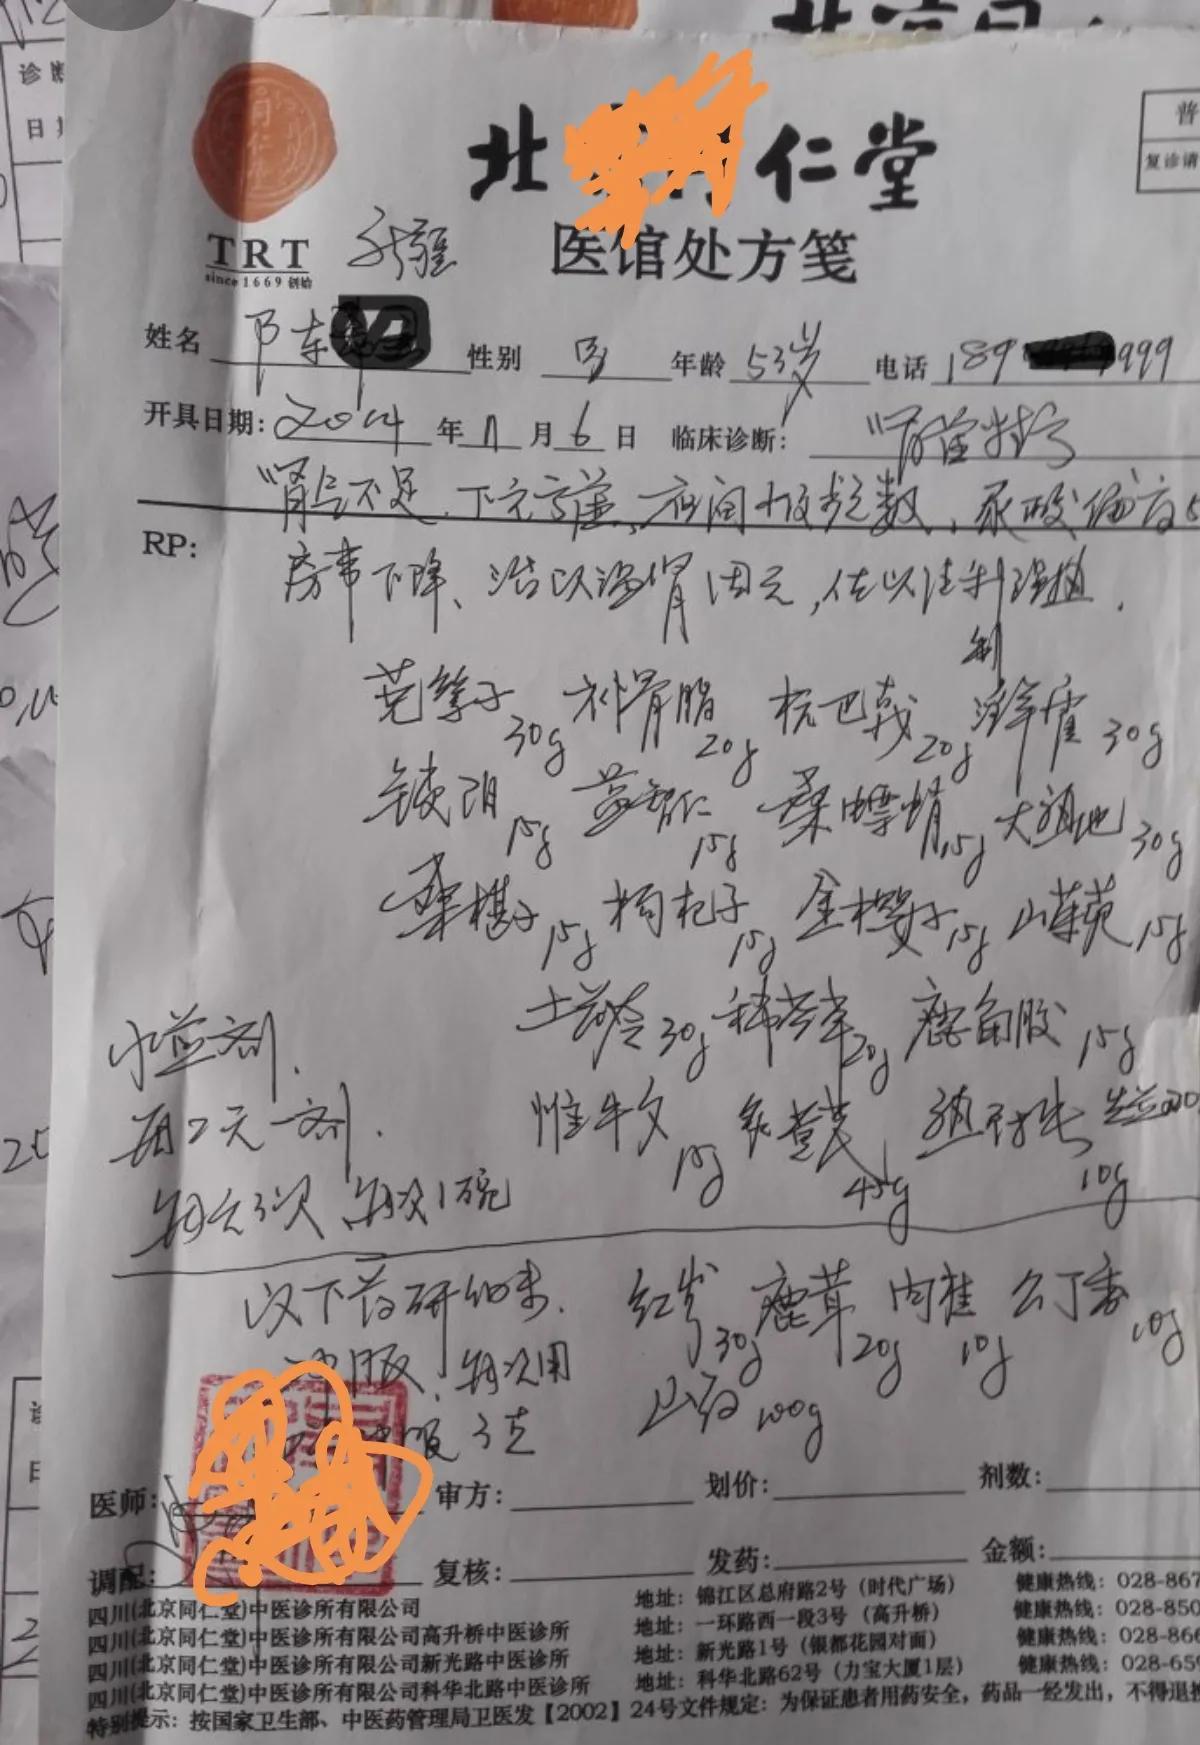 北 仁堂
医馆处方笺
TRT
since 1669 创始
新疆
普
复诊请
诊断
日期
姓名 性别 男 年龄 53岁 电话 189 999
开具日期: 2014 年 11 月 6 日 临床诊断:
肾气不足,下元亏虚,夜间小便次数,尿酸偏高
RP:
房事下降、治以温肾固元,佐以
制
菟丝子30g 补骨脂20g 杭巴戟20g 淫羊藿30g
锁阳15g 益智仁15g 桑螵蛸15g 大熟地30g
桑椹子15g 枸杞子15g 金樱子15g 山茱萸15g
土茯苓30g 豨莶草20g 鹿角胶15g
水煎剂.
淮牛夕15g 炙黄芪45g 10g
每2天一剂.
每天3次 每次1碗
以下药研细末. 红参30g 鹿茸20g 肉桂10g 公丁香10g
冲服,每次用
山药100g
服 3克
医师: 审方: 划价: 剂数:
调配: 复核: 发药: 金额:
四川(北京同仁堂)中医诊所有限公司 地址:锦江区总府路2号(时代广场) 健康热线:028-867
四川(北京同仁堂)中医诊所有限公司高升桥中医诊所 地址:一环路西一段3号(高升桥) 健康热线:028-850
四川(北京同仁堂)中医诊所有限公司新光路中医诊所 地址:新光路1号(银都花园对面) 健康热线:028-866
四川(北京同仁堂)中医诊所有限公司科华北路中医诊所 地址:科华北路62号(力宝大厦1层) 健康热线:028-659
特别提示:按国家卫生部、中医药管理局卫医发【2002】24号文件规定:为保证患者用药安全,药品一经发出,不得退换